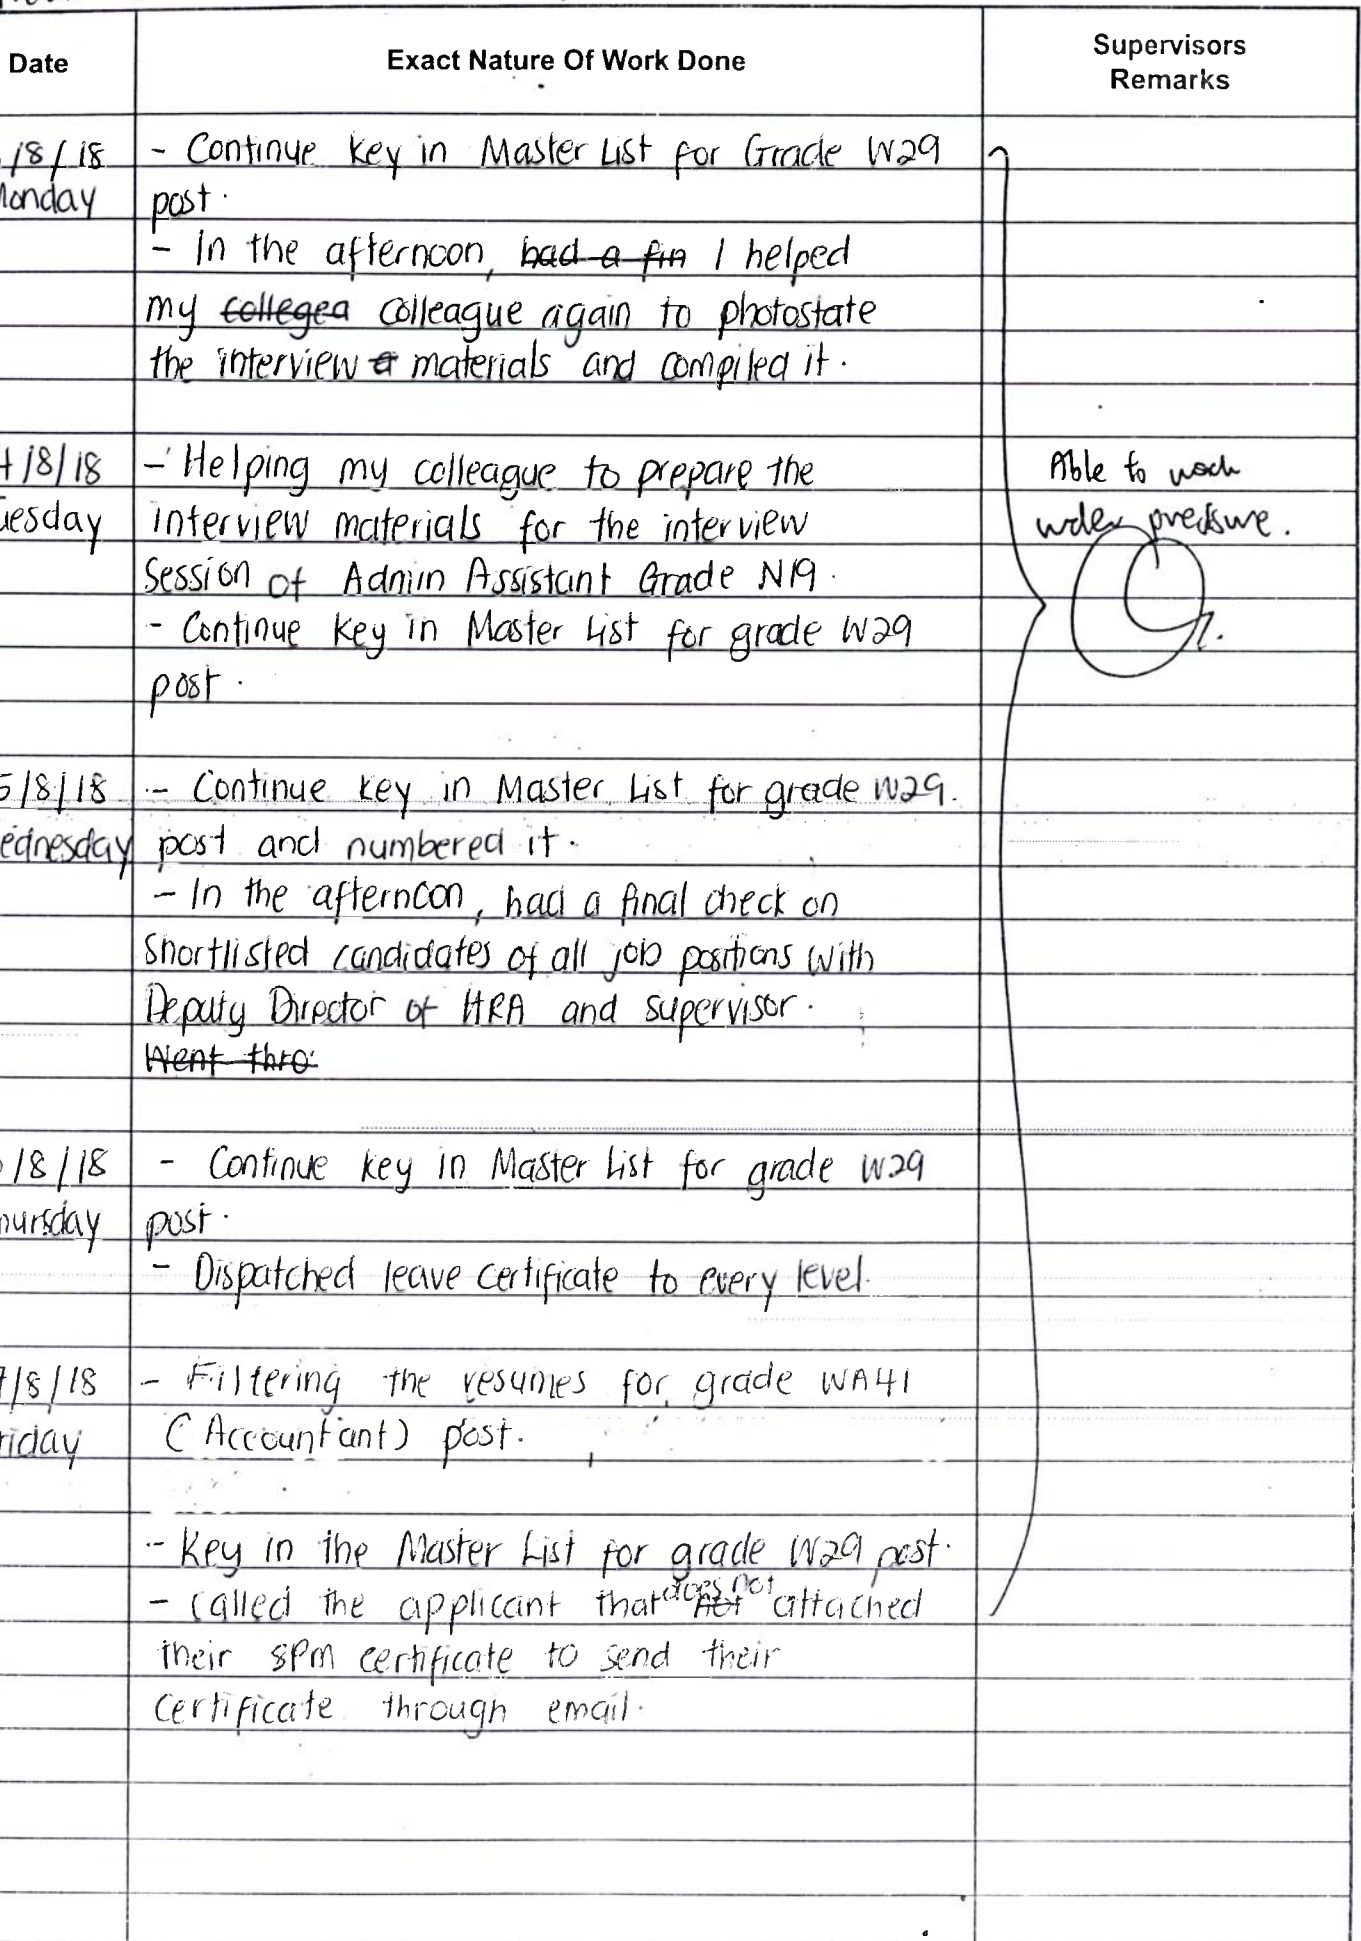 Date Exact Nature Of Work Done Supervisors
Remarks
/8/18 - Continue key in Master List for Grade W29
onday post.
- In the afternoon, had a fin I helped
my collegea colleague again to photostate
the interview a materials and compiled it.
/8/18 - Helping my colleague to prepare the Able to work
uesday interview materials for the interview under pressure.
session of Admin Assistant Grade N19.
- Continue key in Master List for grade W29
post.
5/8/18 - Continue key in Master List for grade W29.
ednesday post and numbered it.
- In the afternoon, had a final check on
shortlisted candidates of all job positions with
Deputy Director of HRA and supervisor.
Went thro
/8/18 - Continue key in Master List for grade W29
hursday post.
- Dispatched leave certificate to every level.
/8/18 - Filtering the resumes for grade WA41
riday (Accountant) post.
- Key in the Master List for grade W29 post.
- called the applicant that not does not attached
their SPM certificate to send their
certificate through email.